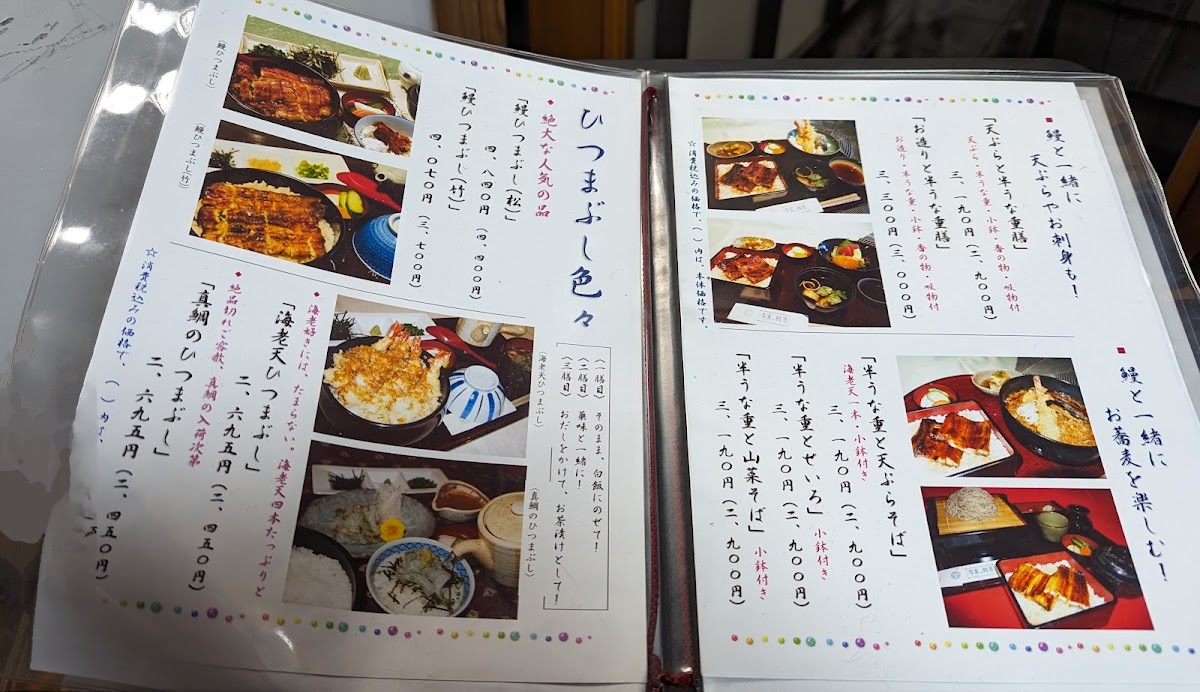 ■ 鰻と一緒に
天ぷらやお刺身も!
「天ぷらと半うな重膳」
天ぷら・半うな重・小鉢・香の物・吸物付
三、一九〇円(二、九〇〇円)
「お造りと半うな重膳」
お造り・半うな重・小鉢・香の物・吸物付
三、三〇〇円(三、〇〇〇円)
☆消費税込みの価格で、( )内は、本体価格です。
■ 鰻と一緒に
お蕎麦を楽しむ!
「半うな重と天ぷらそば」
海老天一本・小鉢付き
三、一九〇円(二、九〇〇円)
「半うな重とせいろ」 小鉢付き
三、一九〇円(二、九〇〇円)
「半うな重と山菜そば」 小鉢付き
三、一九〇円(二、九〇〇円)
ひつまぶし色々
◆絶大な人気の品
「鰻ひつまぶし(松)」
四、八四〇円(四、四〇〇円)
「鰻ひつまぶし(竹)」
四、〇七〇円(三、七〇〇円)
(鰻ひつまぶし)
(鰻ひつまぶし(竹))
(一膳目) そのまま、白飯にのせて!
(二膳目) 薬味と一緒に!
(三膳目) おだしをかけて、お茶漬けとして!
(海老天ひつまぶし)
(真鯛のひつまぶし)
◆海老好きには、たまらない。海老天四本たっぷりと
「海老天ひつまぶし」
二、六九五円(二、四五〇円)
◆絶品切れご容赦、真鯛の入荷次第
「真鯛のひつまぶし」
二、六九五円(二、四五〇円)
☆消費税込みの価格で、( )内